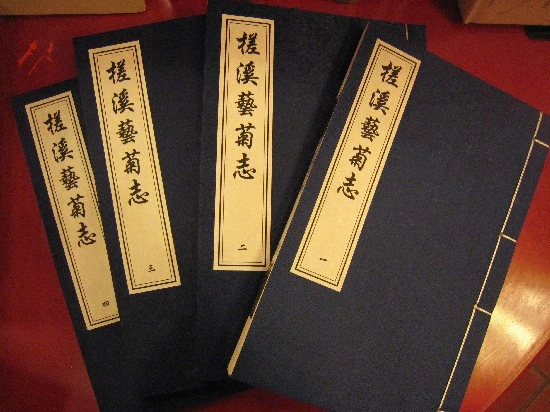 槎溪藝菊志
一
槎溪藝菊志
二
槎溪藝菊志
三
槎溪藝菊志
四